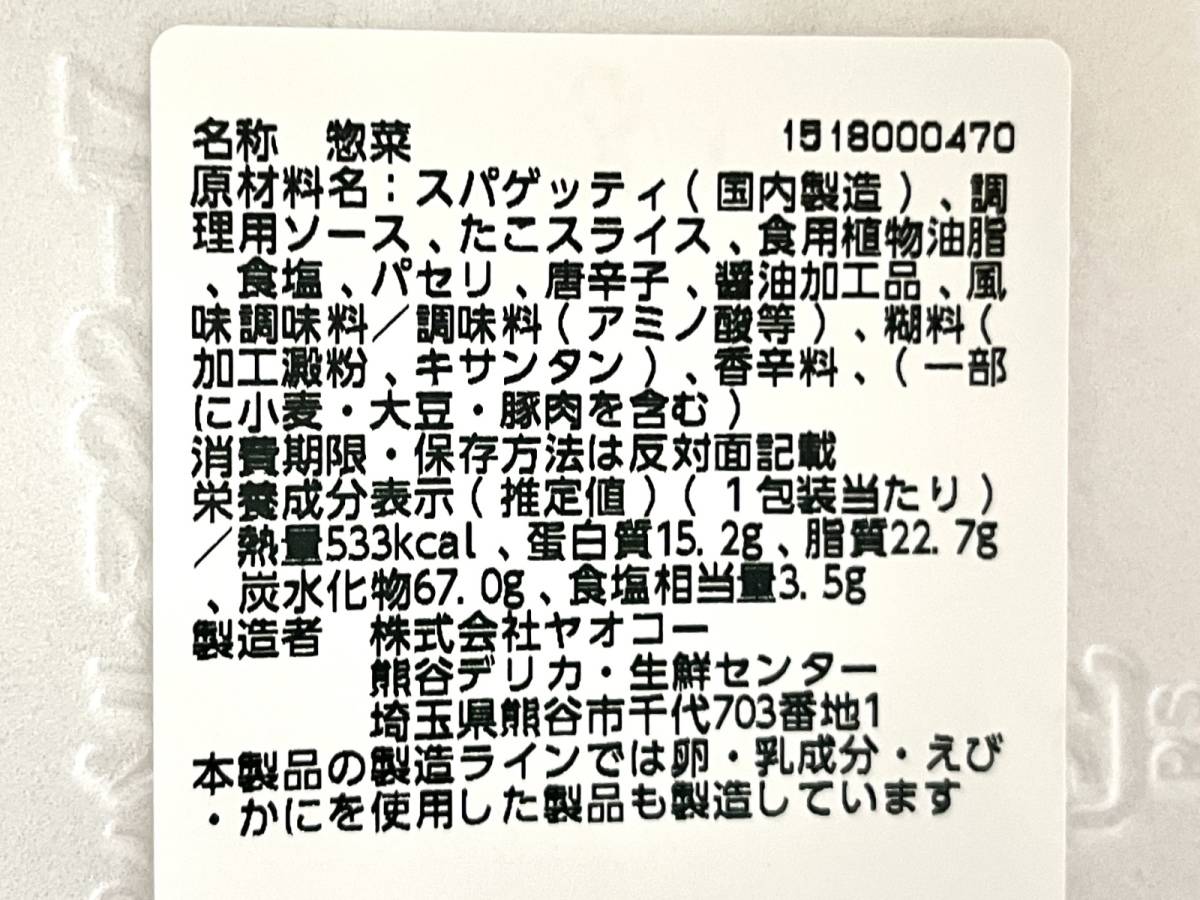 名称　惣菜　1518000470
原材料名：スパゲッティ（国内製造）、調
理用ソース、たこスライス、食用植物油脂
、食塩、パセリ、唐辛子、醤油加工品、風
味調味料／調味料（アミノ酸等）、糊料（
加工澱粉、キサンタン）、香辛料、（一部
に小麦・大豆・豚肉を含む）
消費期限・保存方法は反対面記載
栄養成分表示（推定値）（1包装当たり）
／熱量533kcal、蛋白質15.2g、脂質22.7g
、炭水化物67.0g、食塩相当量3.5g
製造者　株式会社ヤオコー
熊谷デリカ・生鮮センター
埼玉県熊谷市千代703番地1
本製品の製造ラインでは卵・乳成分・えび
・かにを使用した製品も製造しています
PS